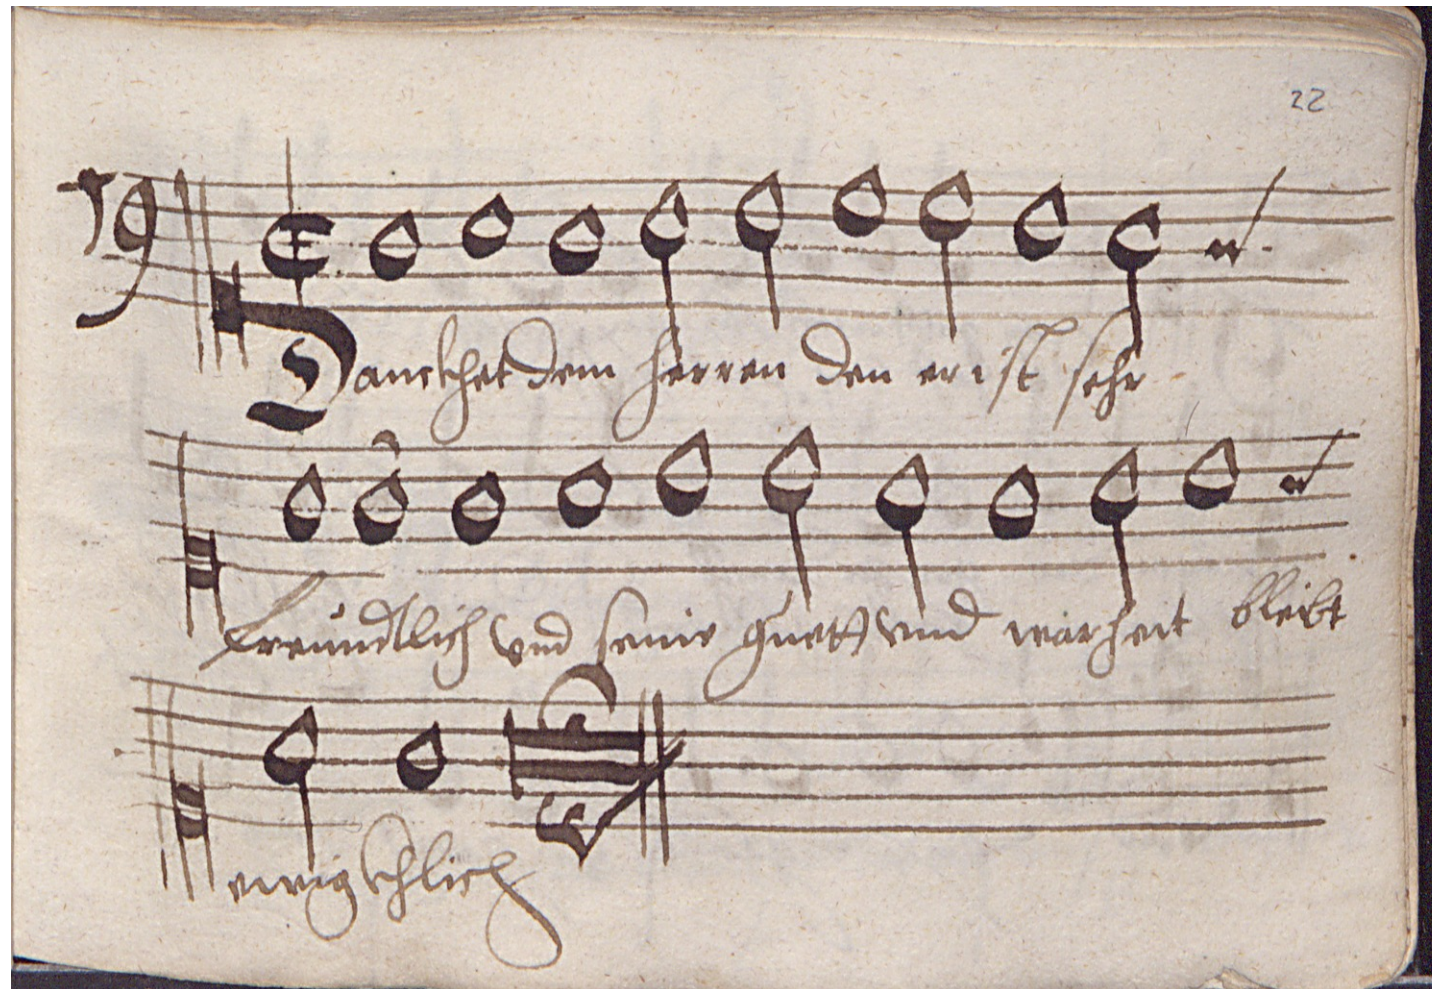 22
Danckhet dem herren den er ist sehr
freündtlich vnd seine guett vnnd warheit bleibt
ewigkhlich